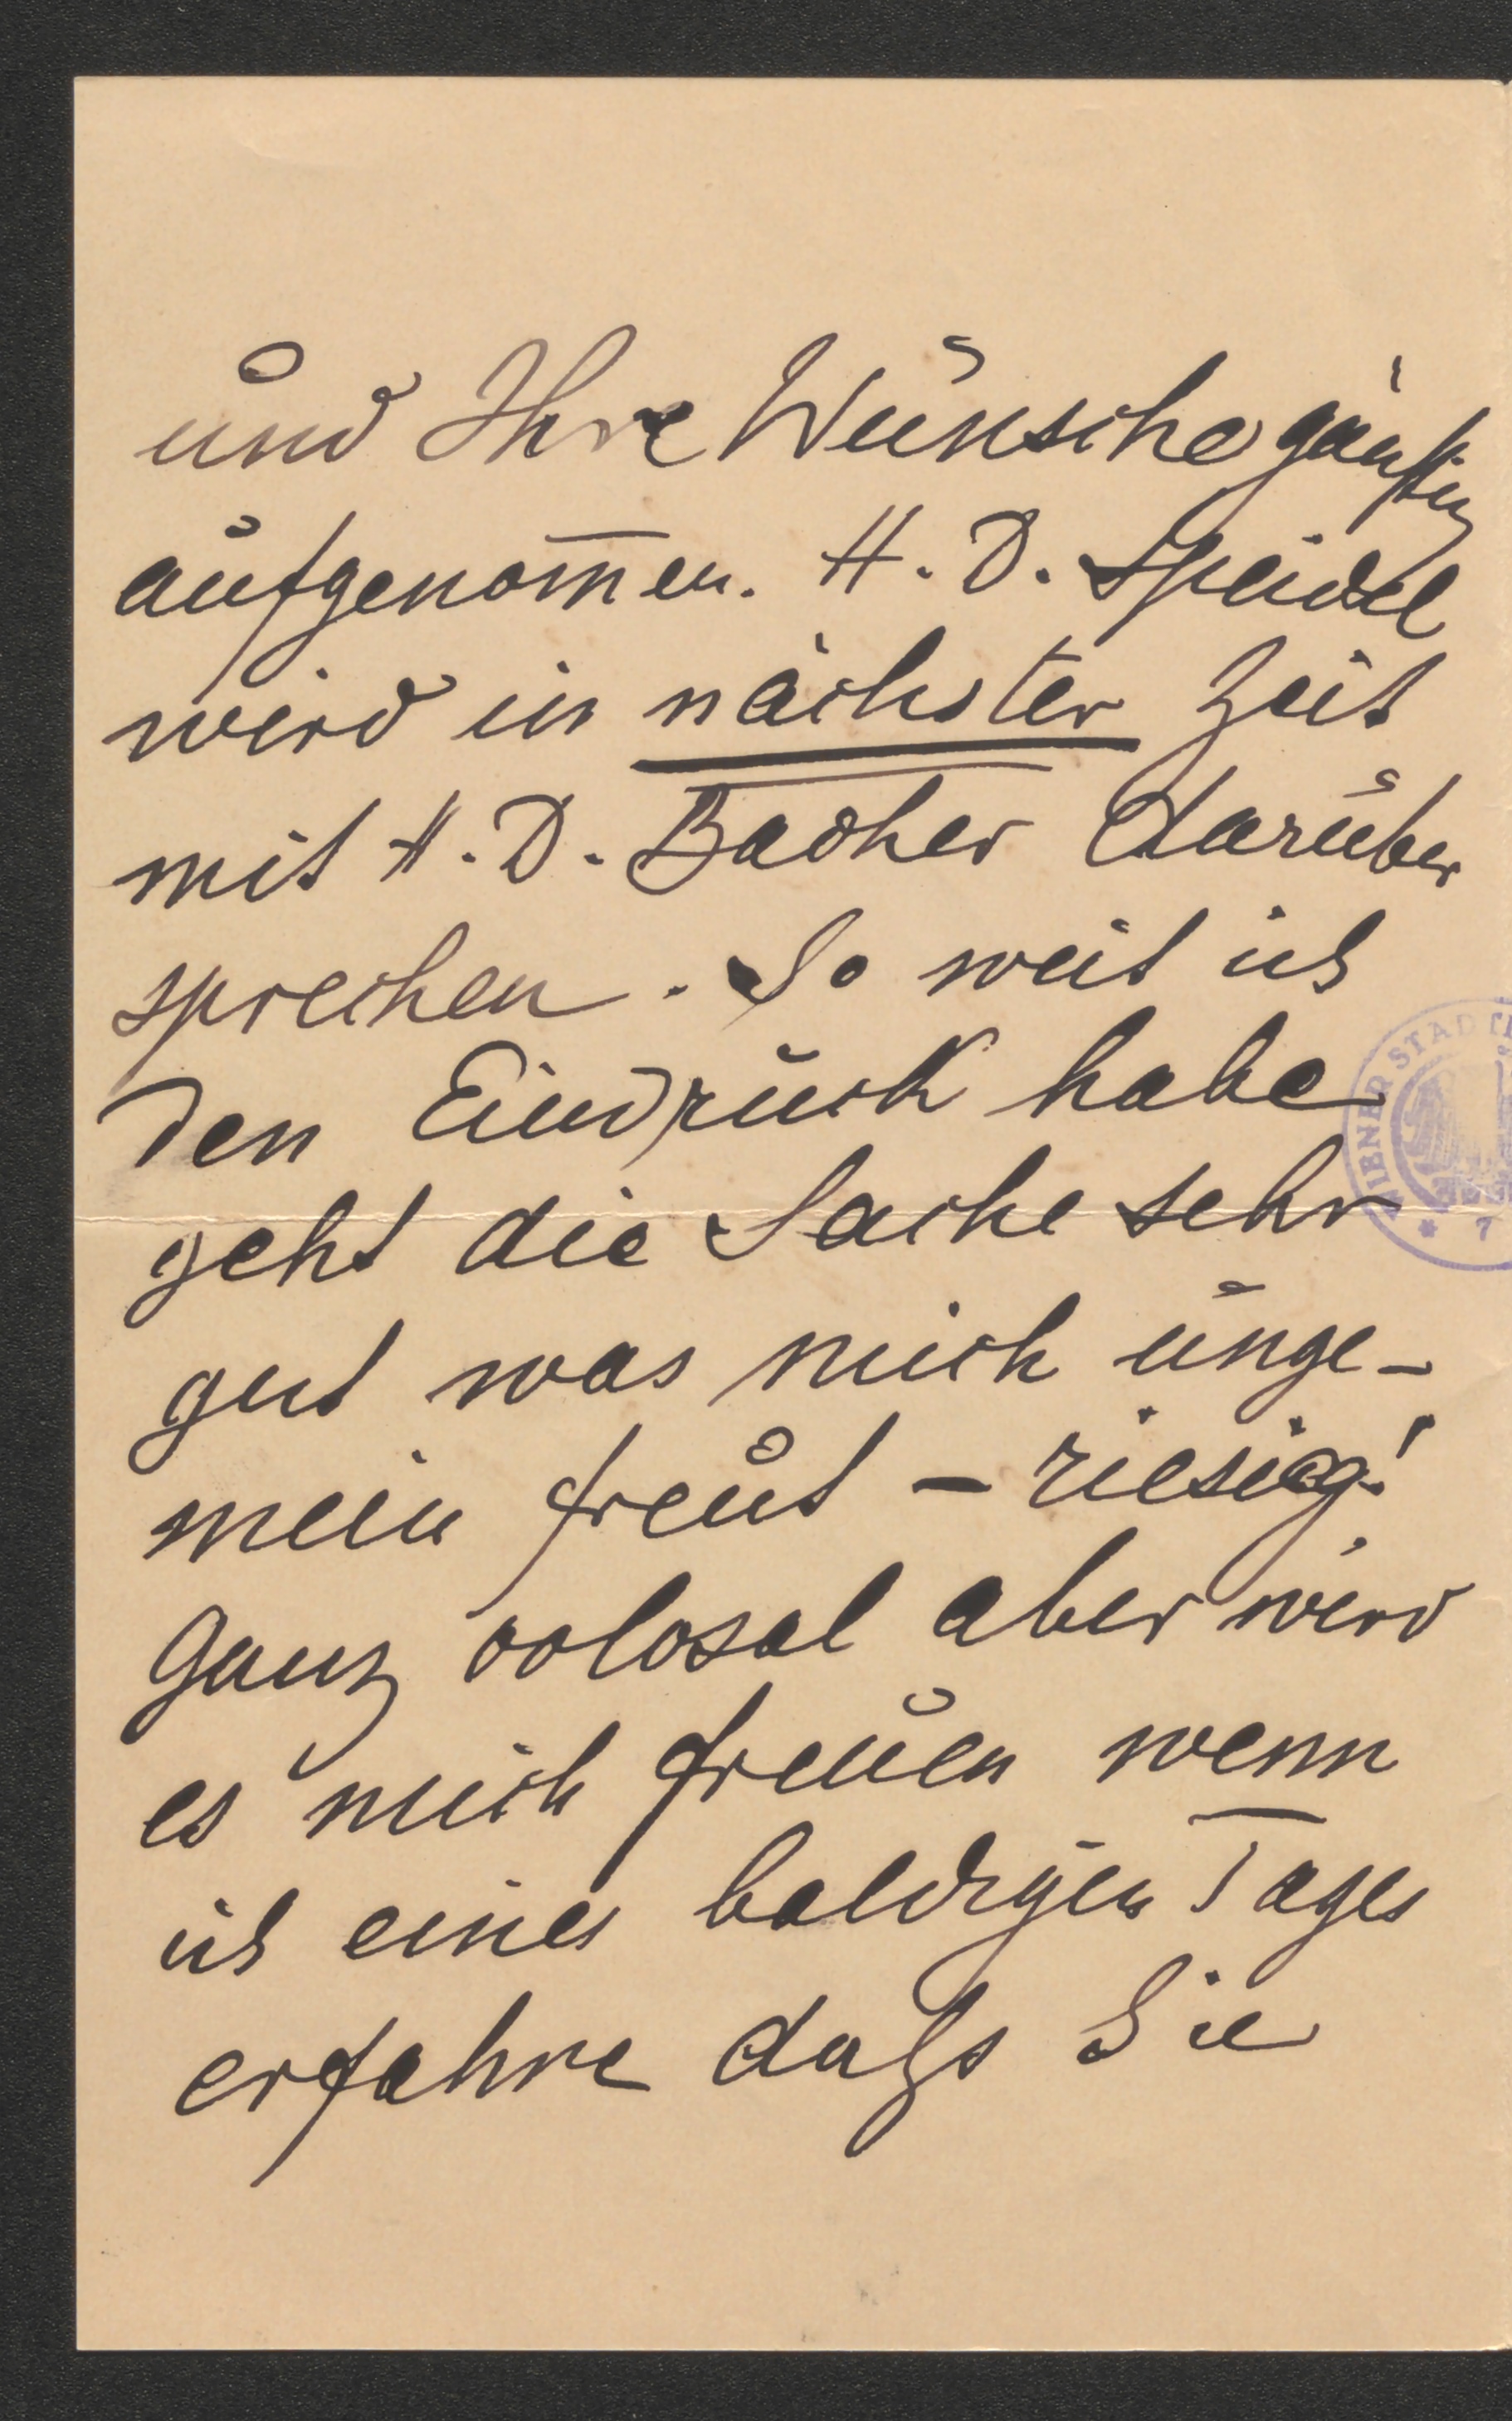 und Ihre Wünsche günstig
aufgenom̅en. H. D. Speidel
wird in nächster Zeit
mit H. D. Bacher darüber
sprechen. So weit ich
den Eindruck habe
geht die Sache sehr
gut was mich unge-
mein freut – riesig!
Ganz colosal aber wird
es mich freuen wenn
ich eines baldigen Tages
erfahre daſs Sie
WIENER STADT
* 7